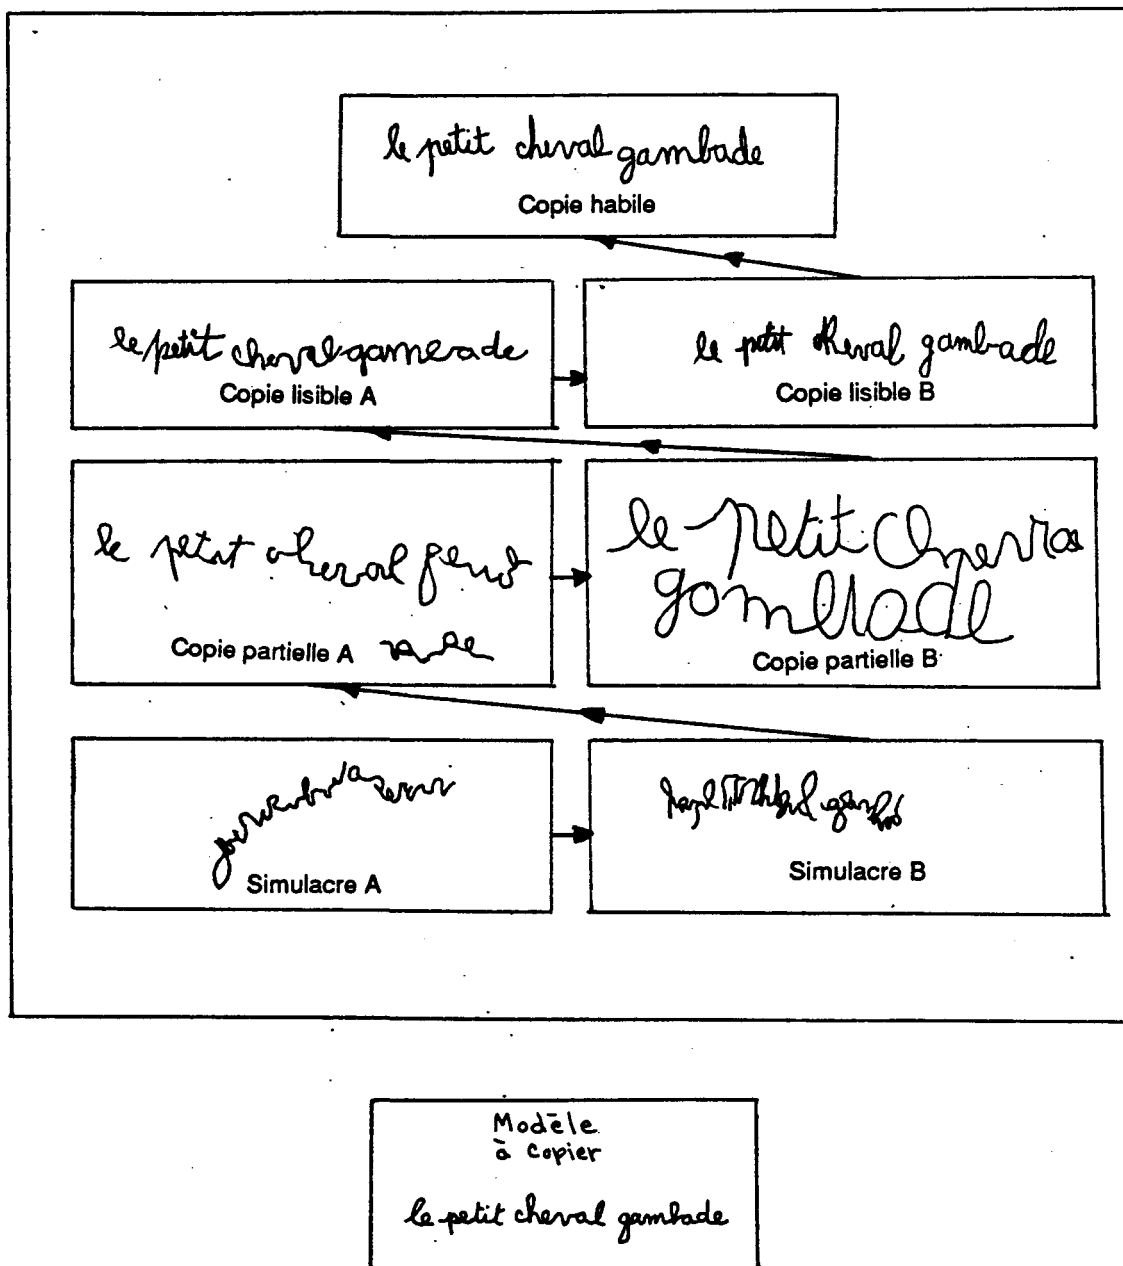 le petit cheval gambade
Copie habile
le petit cheval gamerade
Copie lisible A
le petit cheval gambade
Copie lisible B
le petit cheval
Copie partielle A
le petit
Copie partielle B
Simulacre A
Simulacre B
Modèle
à copier
le petit cheval gambade